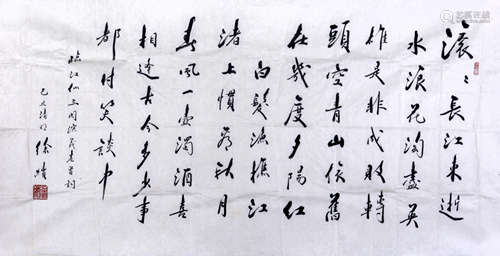 滚〻長江東逝
水浪花淘盡英
雄是非成敗轉
頭空青山依舊
在幾度夕陽紅
白髮漁樵江
渚上慣看秋月
春風一壺濁酒喜
相逢古今多少事
都付笑談中
臨江仙三國演義卷首詞
清明徐